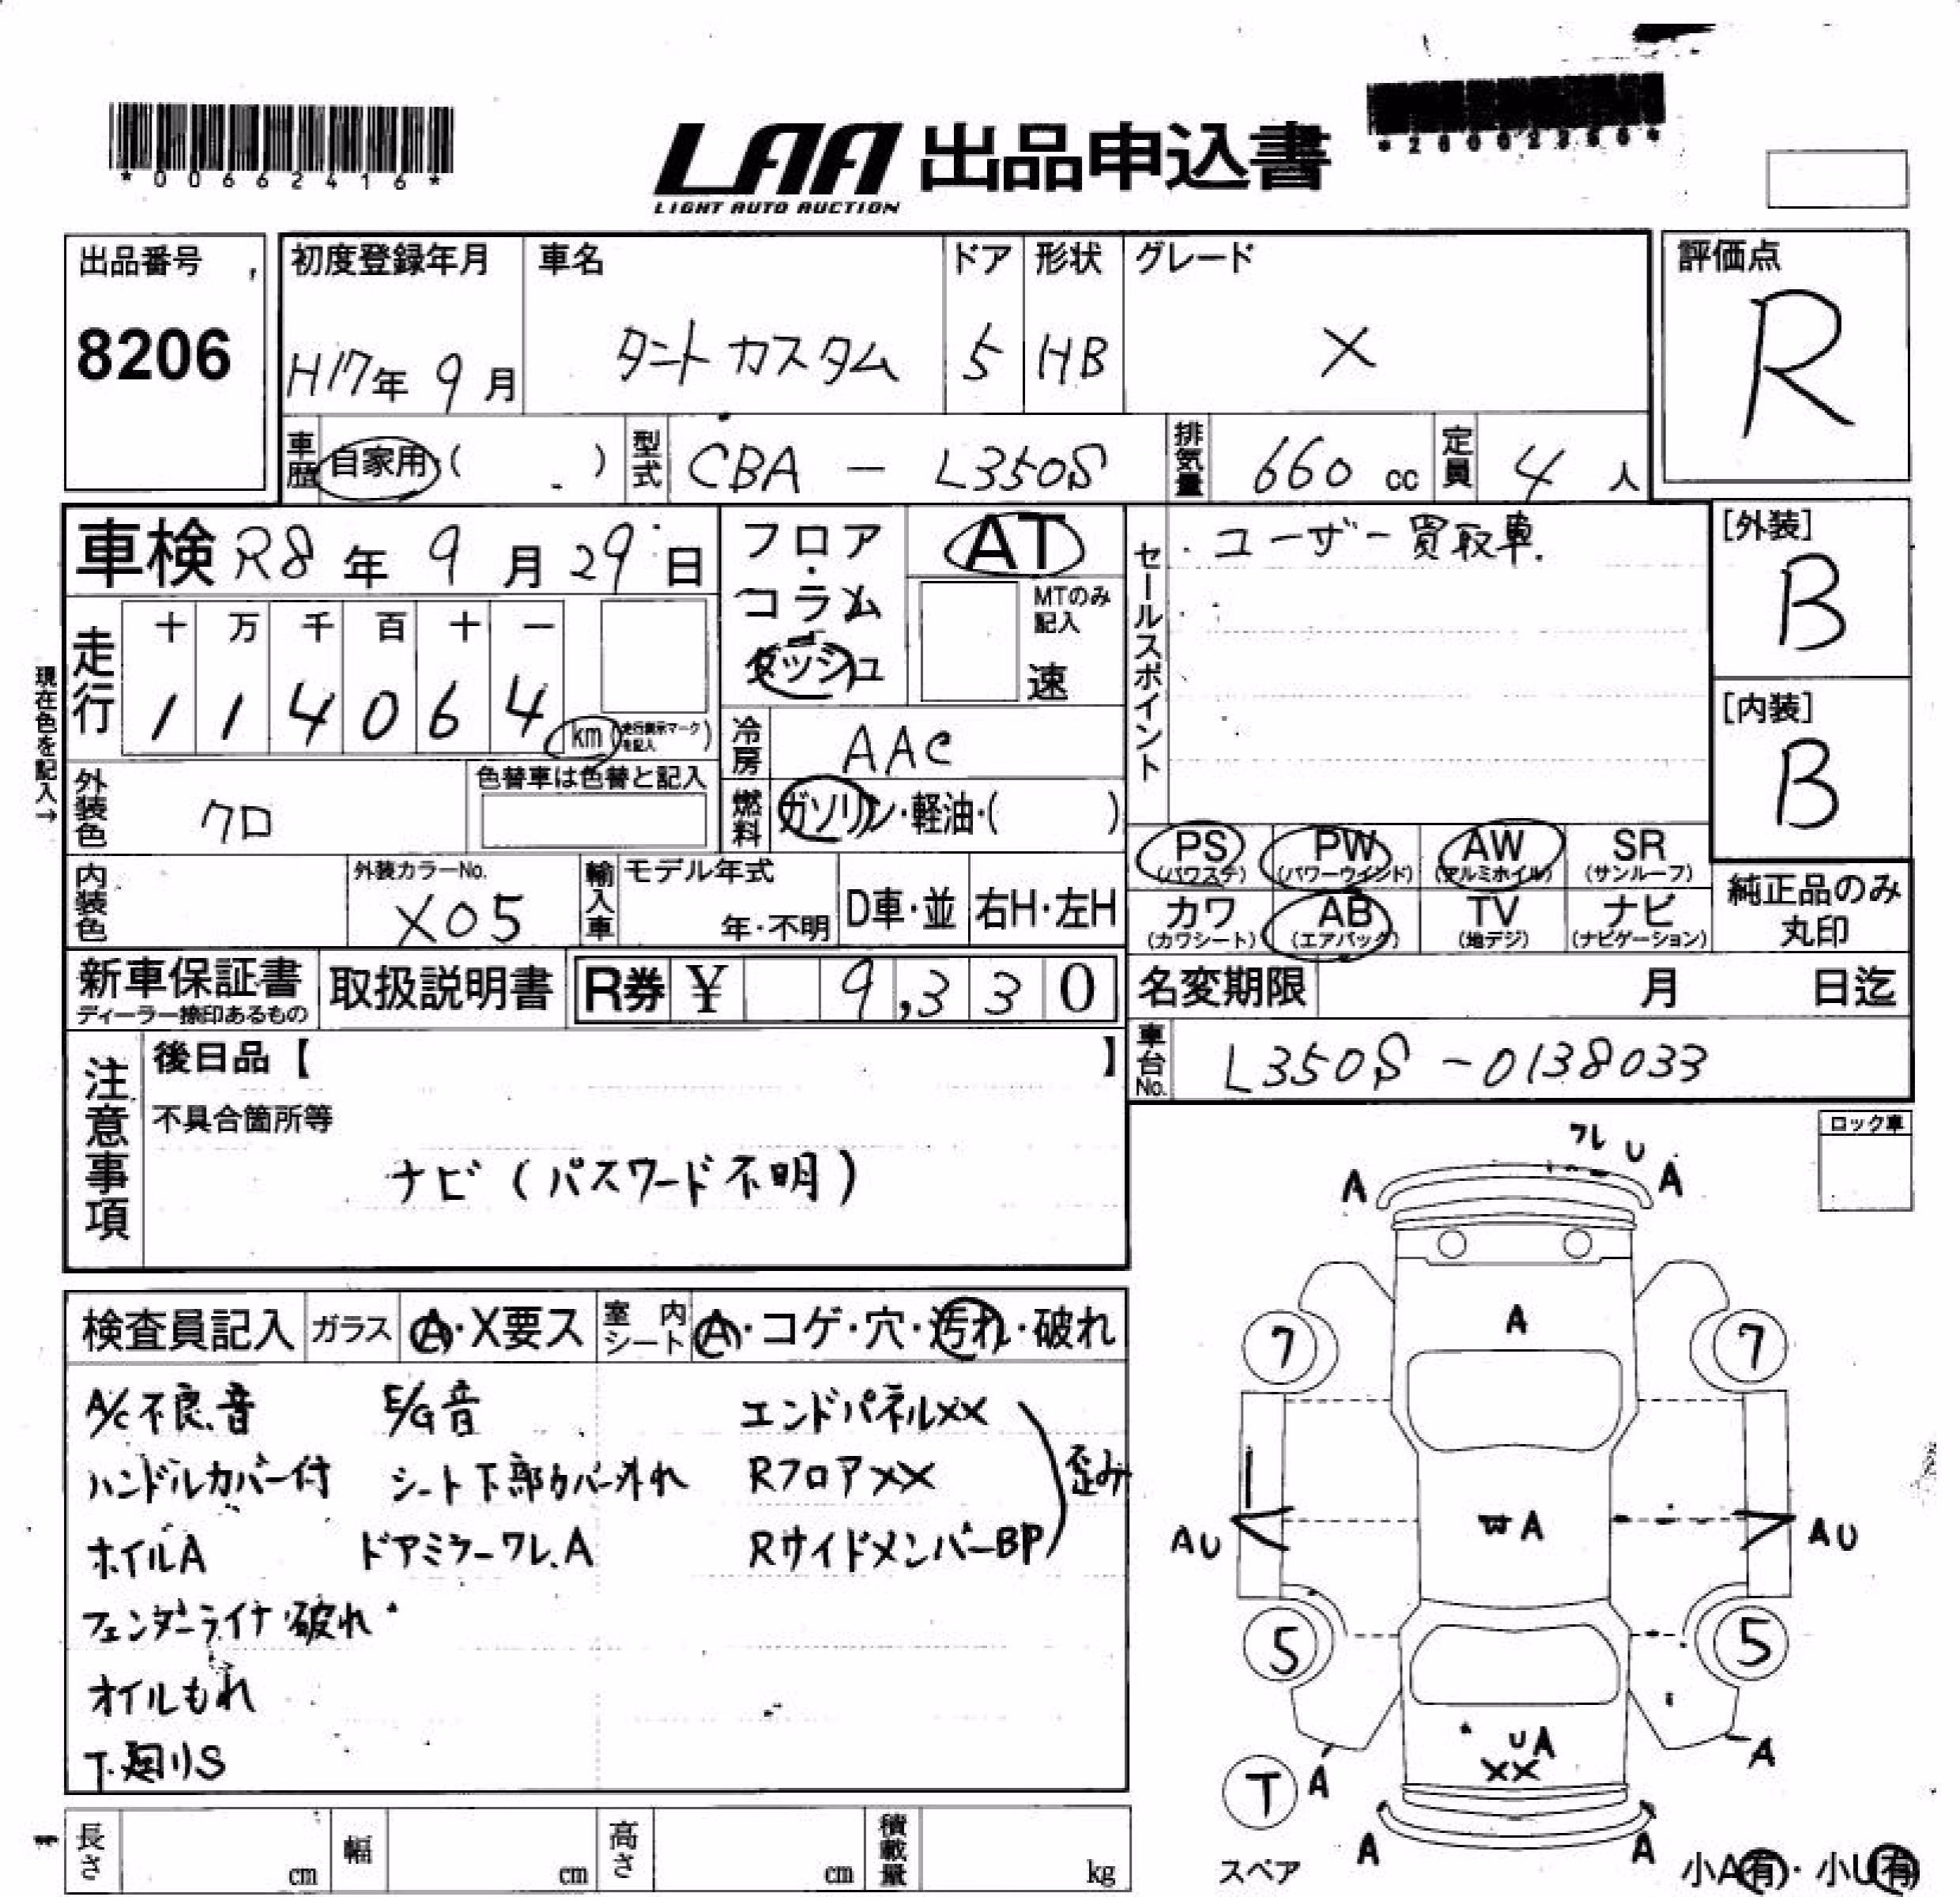 *00662416*
LAA 出品申込書
LIGHT AUTO AUCTION
出品番号
8206
初度登録年月
H17年 9月
車名
タントカスタム
ドア
5
形状
HB
グレード
X
評価点
R
車歴
自家用・( )
型式
CBA - L350S
排気量
660 cc
定員
4 人
車検 R8 年 9 月 29 日
走行
十 万 千 百 十 一
1 1 4 0 6 4
km (走行表示マークを記入)
現在色を記入→
フロア
・
コラム
・
ダッシュ
AT
MTのみ
記入
速
冷房
AAC
燃料
ガソリン・軽油・( )
セールスポイント
ユーザー買取車.
[外装]
B
[内装]
B
外装色
クロ
色替車は色替と記入
内装色
外装カラーNo.
X05
輸入車
モデル年式
年・不明
D車・並
右H・左H
PS
(パワステ)
PW
(パワーウインド)
AW
(アルミホイル)
SR
(サンルーフ)
カワ
(カワシート)
AB
(エアバック)
TV
(地デジ)
ナビ
(ナビゲーション)
純正品のみ
丸印
新車保証書
ディーラー捺印あるもの
取扱説明書
R券 ¥ 9,330
名変期限 月 日迄
車台No.
L350S - 0138033
注意事項
後日品【 】
不具合箇所等
ナビ(パスワード不明)
ロック車
検査員記入
ガラス
A・X要ス
室内シート
A・コゲ・穴・汚れ・破れ
A/C不良.音 E/G音 エンドパネルXX
ハンドルカバー付 シート下部カバー外れ RフロアXX
歪み
ホイルA ドアミラーワレ.A RサイドメンバーBP
フェンダーライナ破れ
オイルもれ
下廻りS
ワレ U
A A
A
7 7
AU A AU
5 5
UA
XX
A A
T
スペア
A A
小A有・小U有
長さ cm
幅 cm
高さ cm
積載量 kg